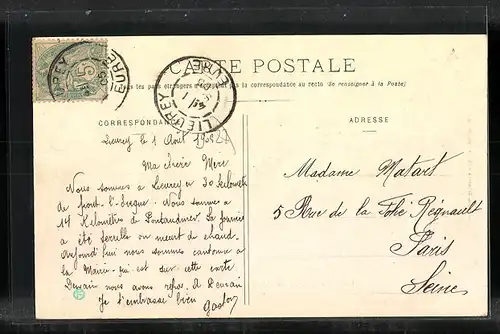 CARTE POSTALE
Tous les pays étrangers n'acceptent pas la correspondance au recto (se renseigner à la Poste)
LIEUREY
EURE
CORRESPONDANCE
ADRESSE
Lieurey le 1 Août 1908
Ma chère Mère
Nous sommes à Lieurey a 30 kilomètres
de pont-l'Eveque. Nous sommes a
14 Kilomètres de Pontaudmer. La journée
a été terrible on meurt de chaud.
Aujourdhui nous sommes cantonné a
la Mairie qui est sur cette carte
Demain nous avons repos. A Demain
Je t'embrasse bien
Gaston
Madame Matart
5 Rue de la Folie Régnault
Paris
Seine